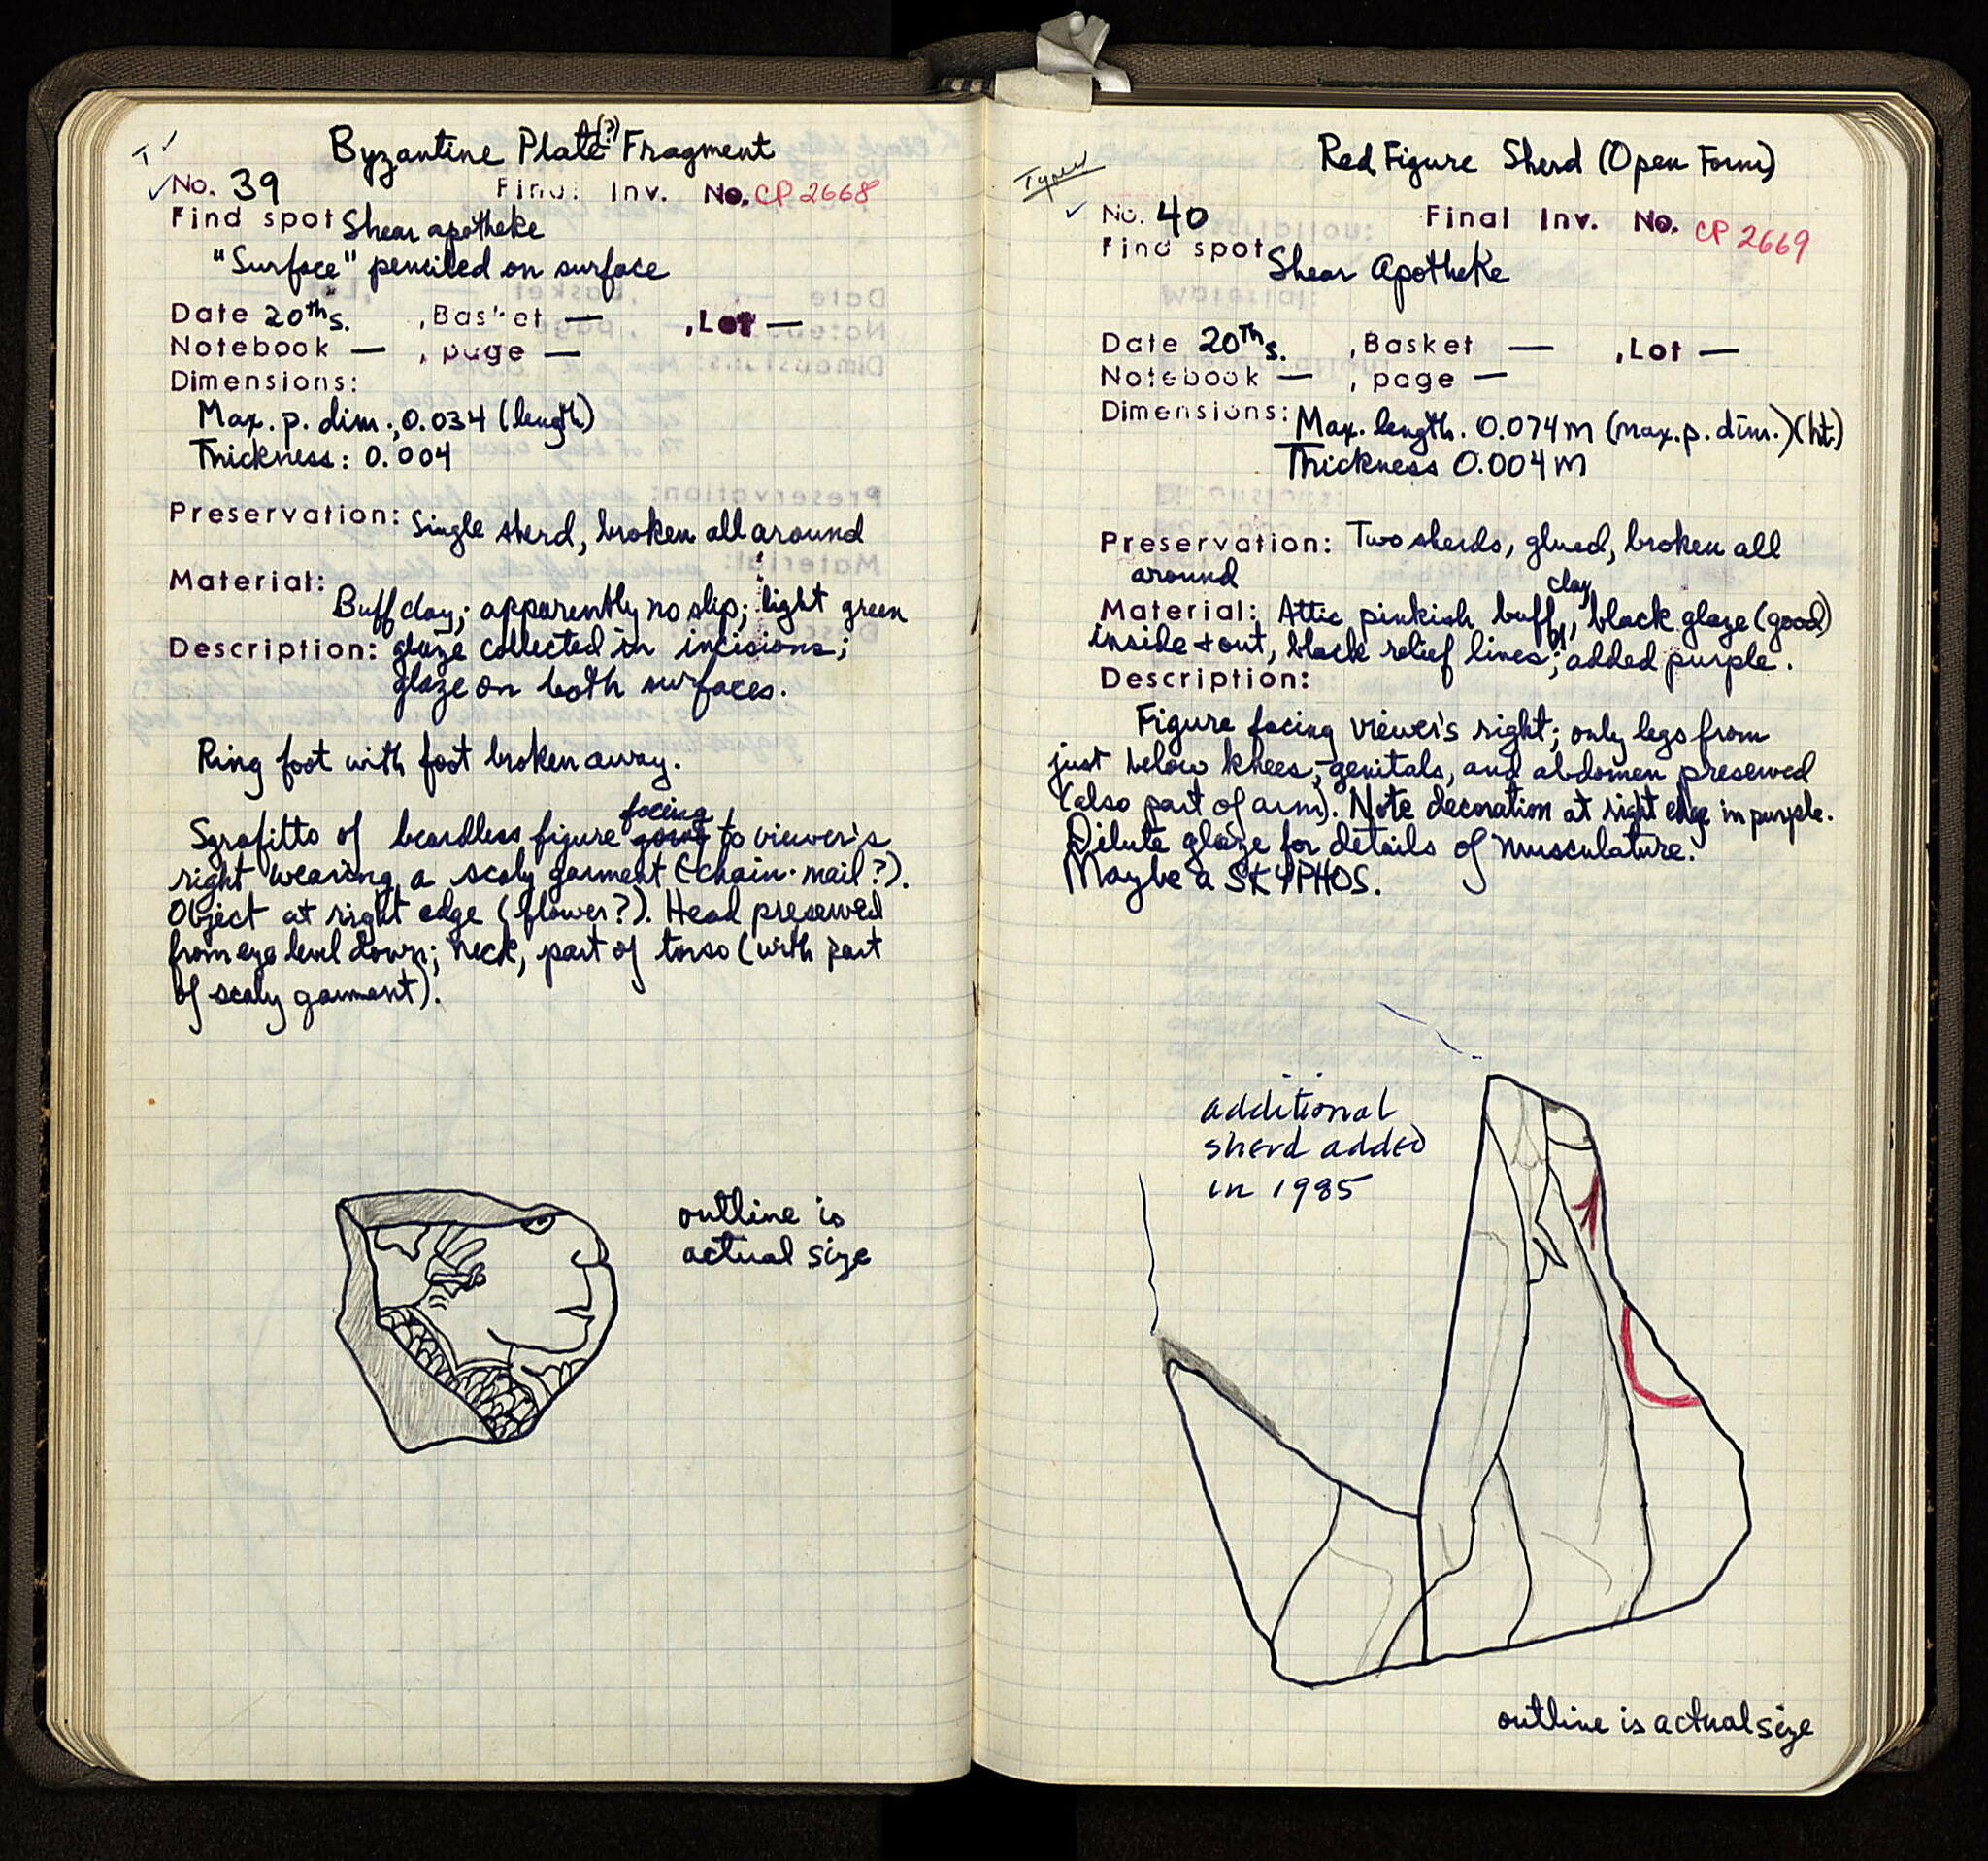 T ✓
Byzantine Plate(?) Fragment
✓No. 39 Final Inv. No. CP 2668
Find spot Shear apotheke
"Surface" penciled on surface
Date 20ths. , Basket — , Lot —
Notebook — , page —
Dimensions:
Max. p. dim., 0.034 (length)
Thickness: 0.004
Preservation: Single sherd, broken all around
Material: Buff clay; apparently no slip; light green
Description: glaze collected in incisions;
glaze on both surfaces.
Ring foot with foot broken away.
Sgrafitto of beardless figure going facing to viewer's
right wearing a scaly garment (chain-mail?).
Object at right edge (flower?). Head preserved
from eye level down; neck, part of torso (with part
of scaly garment).
outline is
actual size
Typed
Red Figure Sherd (Open Form)
✓ No. 40 Final Inv. No. CP 2669
Find spot Shear Apotheke
Date 20Ths. , Basket — , Lot —
Notebook — , page —
Dimensions: Max. length. 0.074m (max. p. dim.) (ht.)
Thickness 0.004m
Preservation: Two sherds, glued, broken all
around
Material: Attic pinkish buff clay, black glaze (good)
inside + out, black relief lines; added purple.
Description:
Figure facing viewer's right; only legs from
just below knees, genitals, and abdomen preserved
(also part of arm). Note decoration at right edge in purple.
Dilute glaze for details of musculature.
Maybe a SKYPHOS.
additional
sherd added
in 1985
outline is actual size